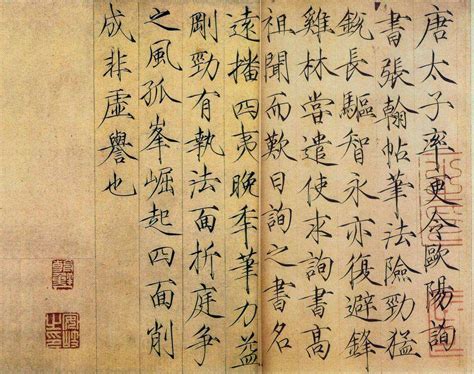 唐太子率更令歐陽詢
書張翰帖筆法險勁猛
銳長驅智永亦復避鋒
雞林嘗遣使求詢書高
祖聞而歎曰詢之書名
遠播四夷晚秊筆力益
剛勁有執法面折庭爭
之風孤峯崛起四面削
成非虛譽也